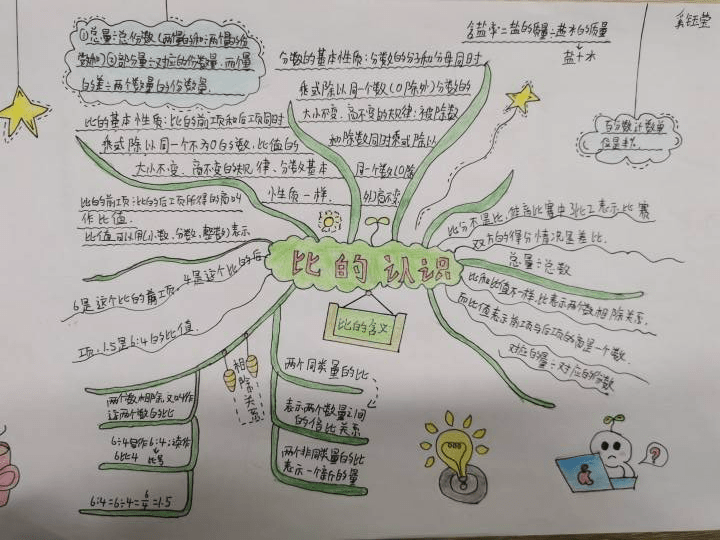 ①总量÷总份数(两量的和÷两个量的份
数和)②部分量÷对应的份数量.两个量
的差÷两个数量的份数量.
分数的基本性质:分数的分子和分母同时
乘或除以同一个数(0除外)分数的
大小不变、商不变的规律:被除数
和除数同时乘或除以
同一个数(0除
外)商不变.
含盐率=盐的质量÷盐水的质量
盐+水
百分数计数单
位是1%.
比的基本性质:比的前项和后项同时
乘或除以同一个不为0的数,比值的
大小不变、商不变的规律、分数基本
性质一样.
比的前项÷比的后项所得的商叫
作比值.
比值可以用(小数、分数、整数)表示
6是这个比的前项,4是这个比的后
项,1.5是6:4的比值.
比的认识
比的含义
比分不是比,体育比赛中3比2表示比赛
双方的得分情况是差比.
总量÷总数
比和比值不一样,比表示两个数相除关系,
而比值表示前项与后项的商是一个数.
对应的量÷对应的份数
相除关系
两个数相除,又叫作
这两个数的比
6÷4写作6:4,读作
6比4 比号
6:4=6÷4=6/4=1.5
两个同类量的比
表示两个数量之间
的倍比关系
两个非同类量的比
表示一个新的量
?